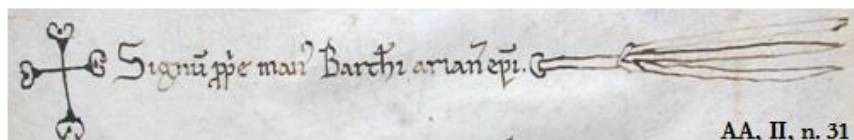 Signū ꝓp̄e man᾽ Barth̄i arian̄ ep̄i.
AA, II, n. 31